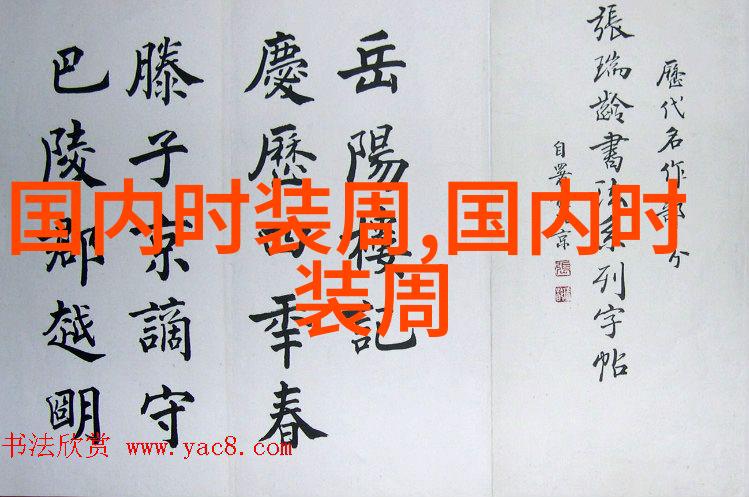 歷代名作部分
張瑞齡書法系列字帖
自署 京
岳陽樓記
慶歷四年春
滕子京謫守
巴陵郡越明
国内时装周,国内时
装周
书法欣赏 www.yac8.com